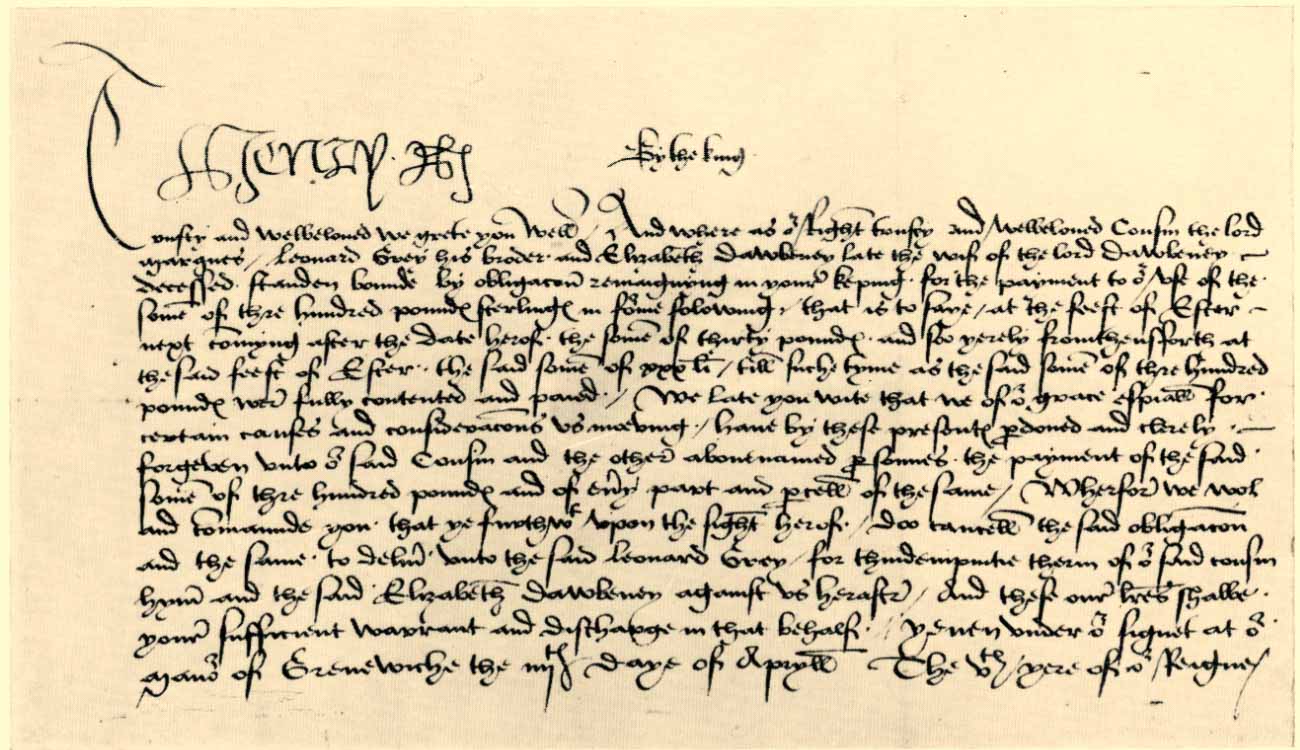 Henry R By the king
Trusty and welbeloued we grete you well / And where as oʳ Right trusty and welbeloued Cousin the lord
marques / Leonard Grey his broder and Elizabeth dawbeney late the wif of the lord dawbeney
decessed standen bounde by obligacoun remaignyng in youre keping for the payment to oʳ vse of the
some of thre hundred pound sterling in fōme folowing / that is to saye / at the feest of Ester
next cōmyng after the date herof the some of thirty pound and soo yerely fromthensforth at
the said feest of Ester the said some of xxx li / till suche tyme as the said some of thre hundred
pound were fully contented and paied / We late you wite that we of oʳ grace espiall for
certain causes and consideracōns vs moeving / haue by these present pdoned and clerely
forgeven vnto oʳ said Cousin and the other abouenamed psonnes the payment of the said
some of thre hundred pound and of eūy part and pcell of the same / Wherfore we wol
and cōmaunde you that ye furthwᵗ vpon the sight herof / doo cancell the said obligacōn
and the same to deliū vnto the said Leonard Grey / for thindempnitie therin of oʳ said cousin
hym and the said Elizabeth dawbeney against vs herafter / And these our lres shalbe
youre sufficient warrant and discharge in that behalf / yeuen vnder oʳ signet at oʳ
Manoʳ of Grenewiche the iiijᵗʰ daye of Apryll The vᵗʰ yere of oʳ Reigne